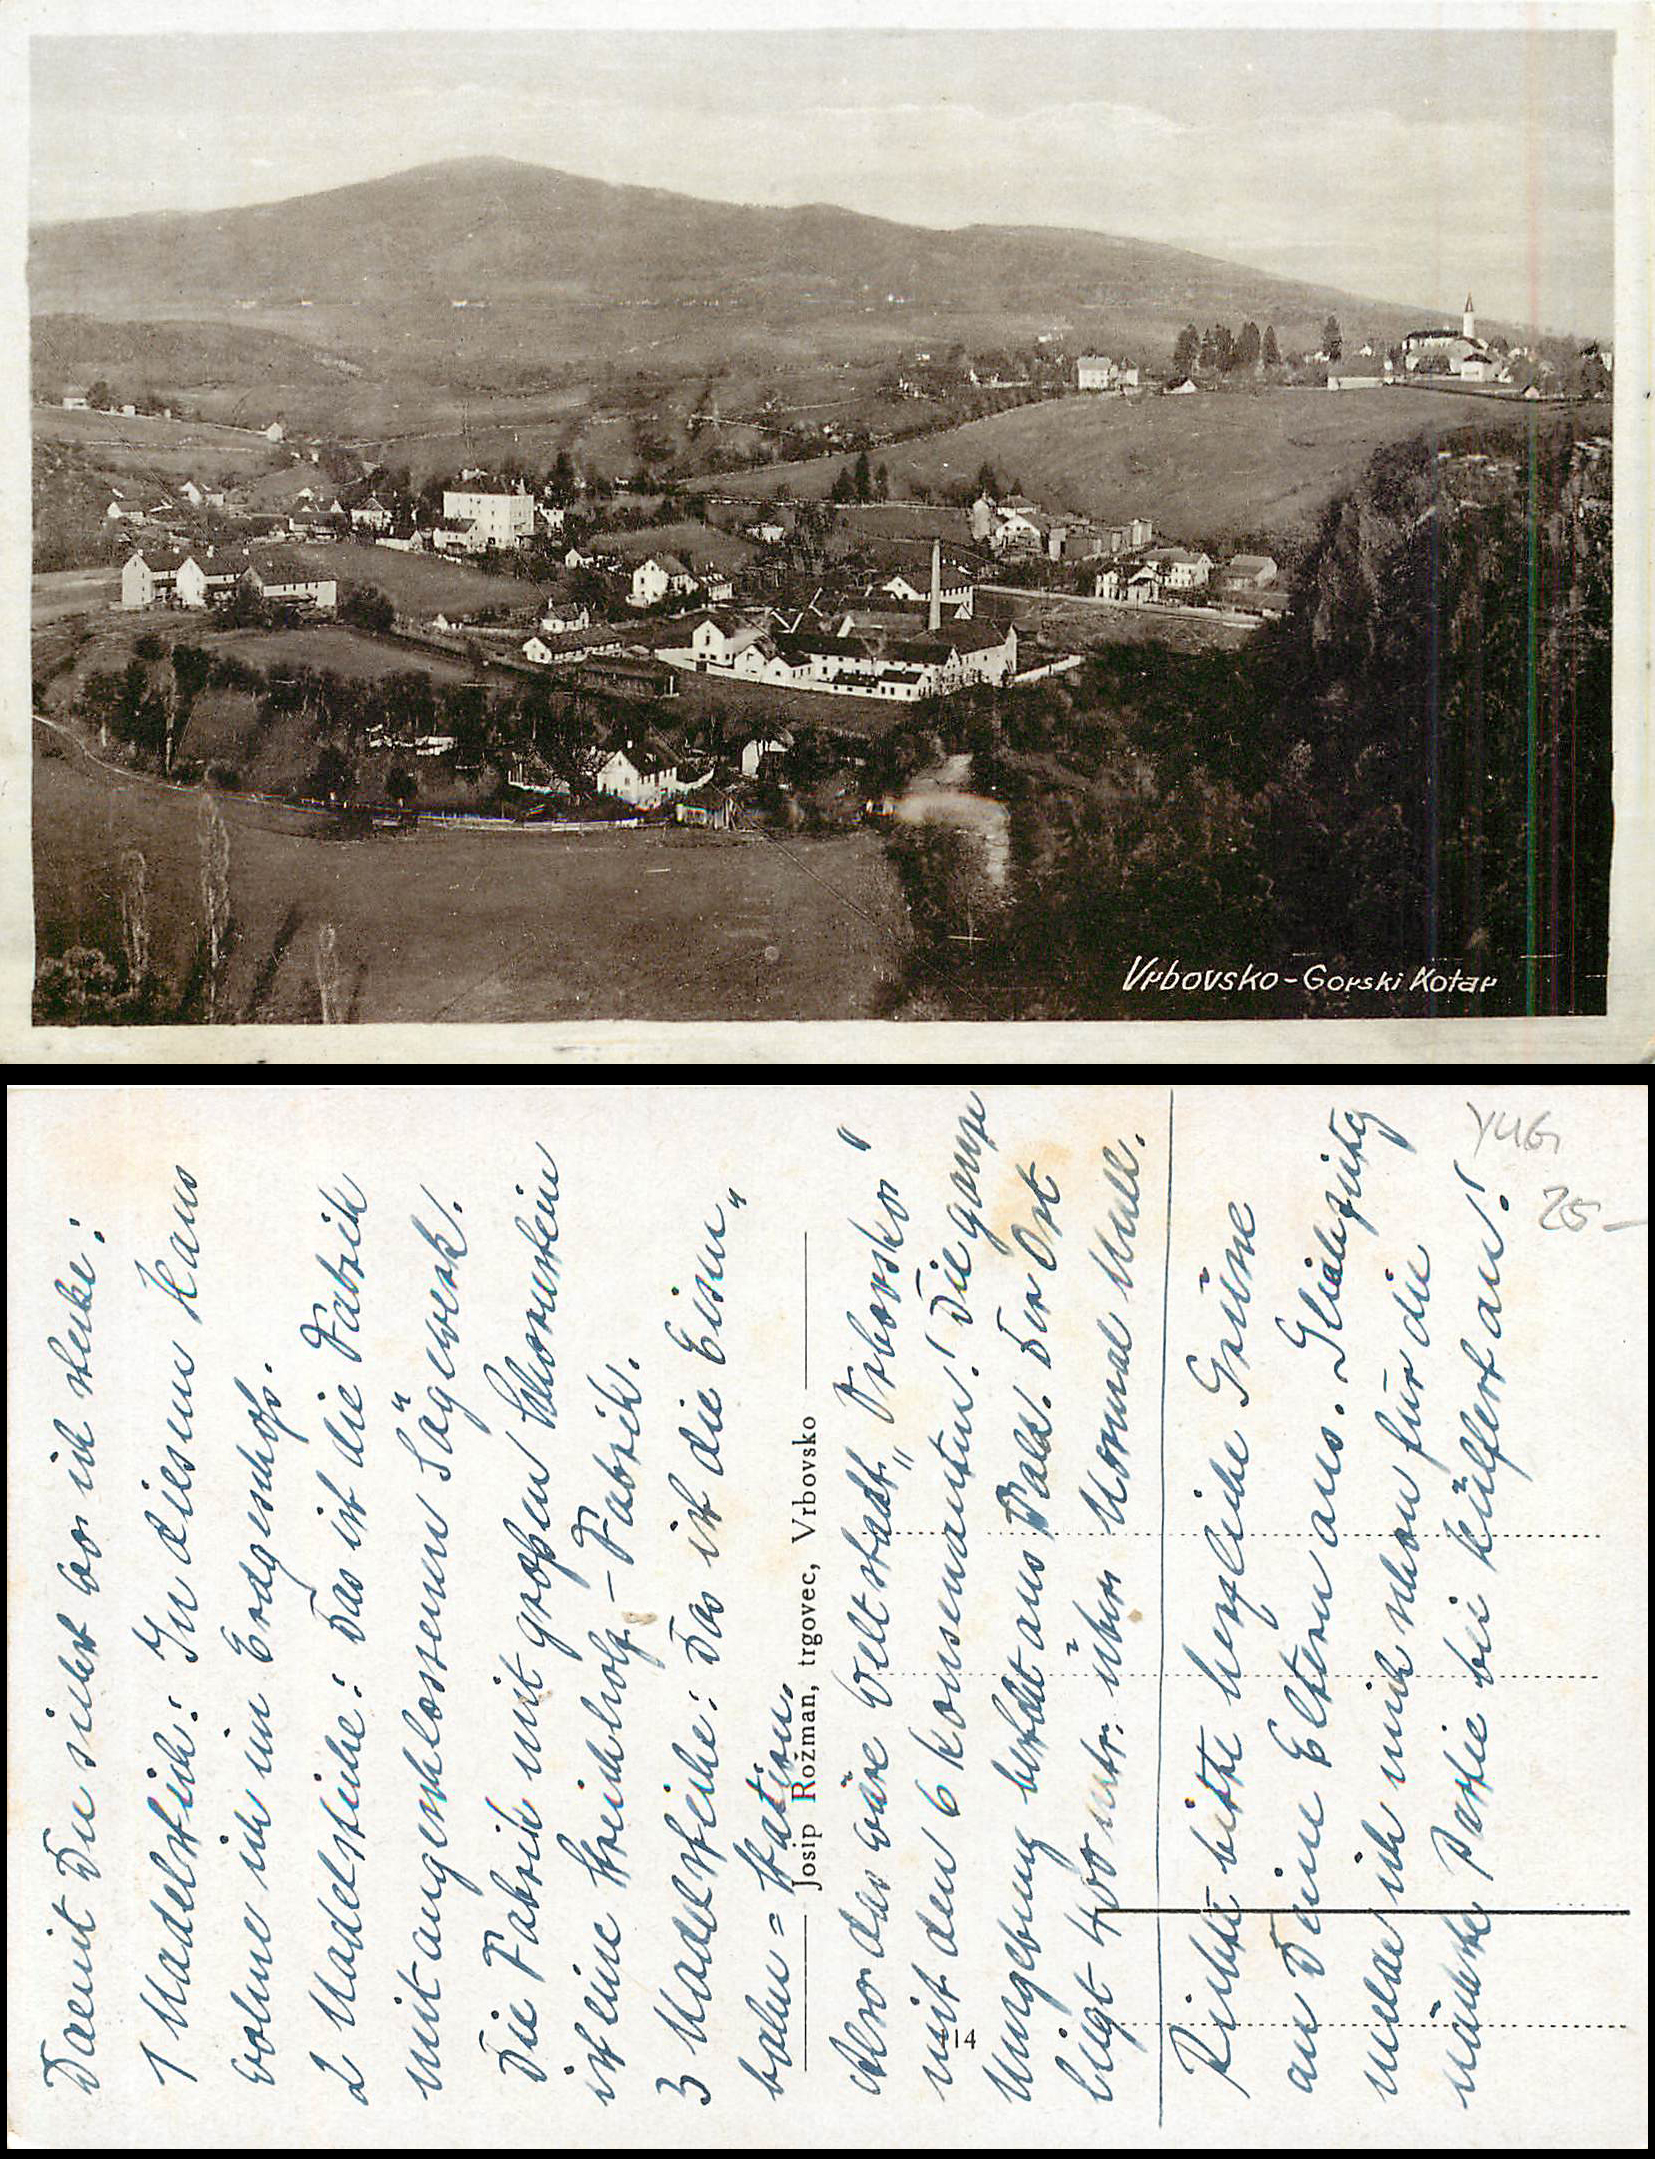 Vrbovsko - Gorski Kotar
Damit Du siehst wo ich stecke:
1 Nadelstich: In diesem Haus
wohne ich im Erdgeschoß.
2 Nadelstiche: Das ist die Fabrik
mit angeschlossenem Sägewerk.
Die Fabrik mit großem Schornstein
ist eine Streichholz-Fabrik.
3 Nadelstiche: Das ist die Eisen„
bahn=Station.
Josip Rožman, trgovec, Vrbovsko
Also das wäre Weltstadt „Vrbovsko"
mit den 6 Konsumenten! Die ganze
Umgebung besteht aus Wald. Der Ort
liegt 400 mtr. über Normal Null.
14
Richte bitte herzliche Grüsse
an Deine Eltern aus. Gleichzeitig
melde ich mich schon für die
nächste Partie bei
YUG
25-